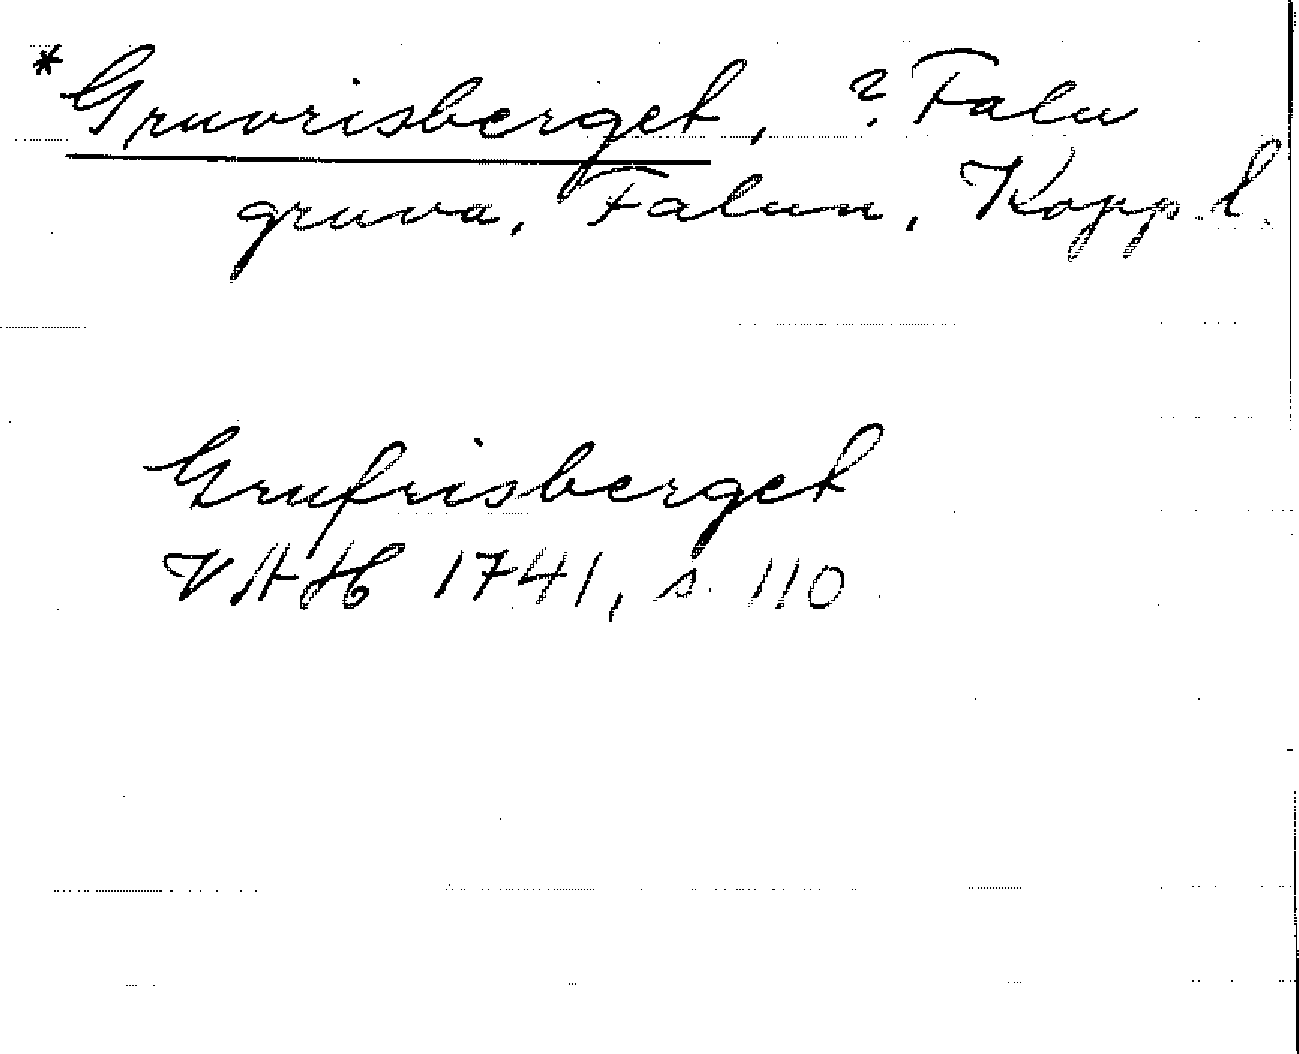 *Gruvrisberget, ? Falu
gruva, Falun, Kopp. l.
Grufrisberget
VAH 1741, s. 110